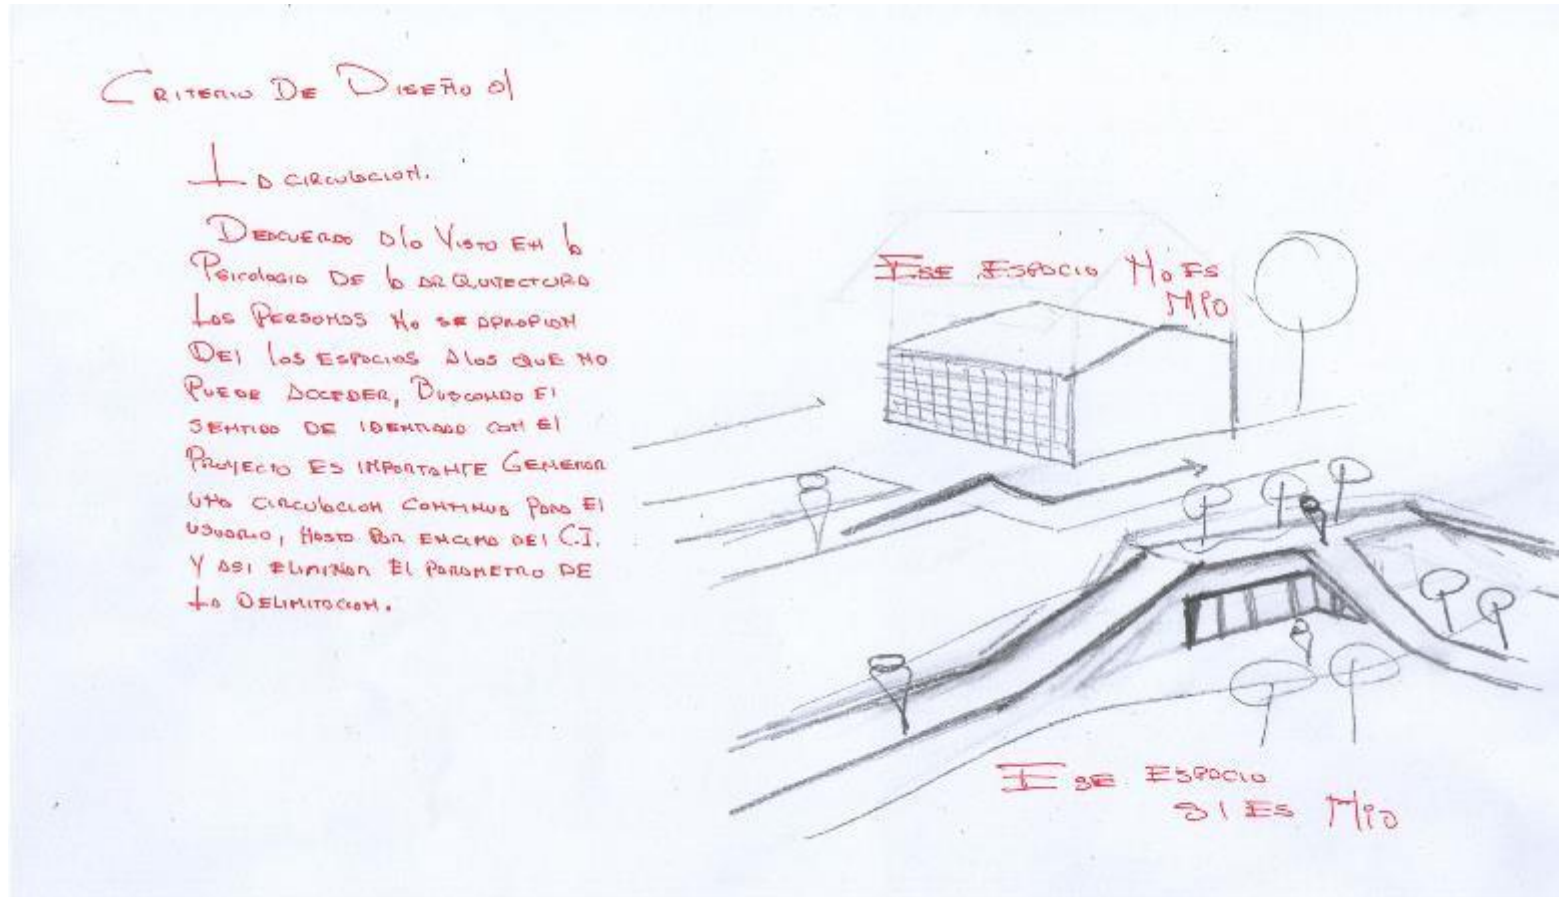 CRITERIO DE DISEÑO 01
LA CIRCULACION.
DEACUERDO A lo VISTO EN la
PSICOLOGIA DE la ARQUITECTURA
LAS PERSONAS NO SE APROPIAN
DEl los ESPACIOS A los QUE NO
PUEDE ACCEDER, BUSCANDO El
SENTIDO DE IDENTIDAD CON El
PROYECTO ES IMPORTANTE GENERAR
UNA CIRCULACION CONTINUA PARA El
USUARIO, HASTA POR ENCIMA DEl C.I.
Y ASI ELIMINAR EL PARAMETRO DE
LA DELIMITACION.
ESE ESPACIO NO ES
MIO
ESE ESPACIO
SI ES MIO